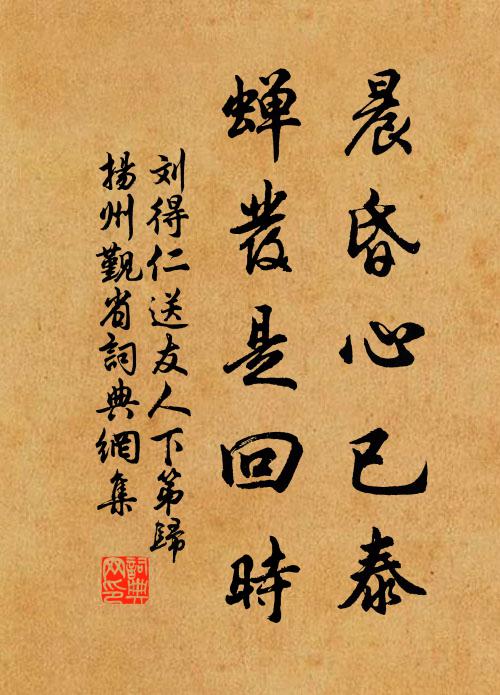 晨昏心已泰
蝉發是回時
刘得仁送友人下第歸
揚州覲省詞典網集
詞典
网印